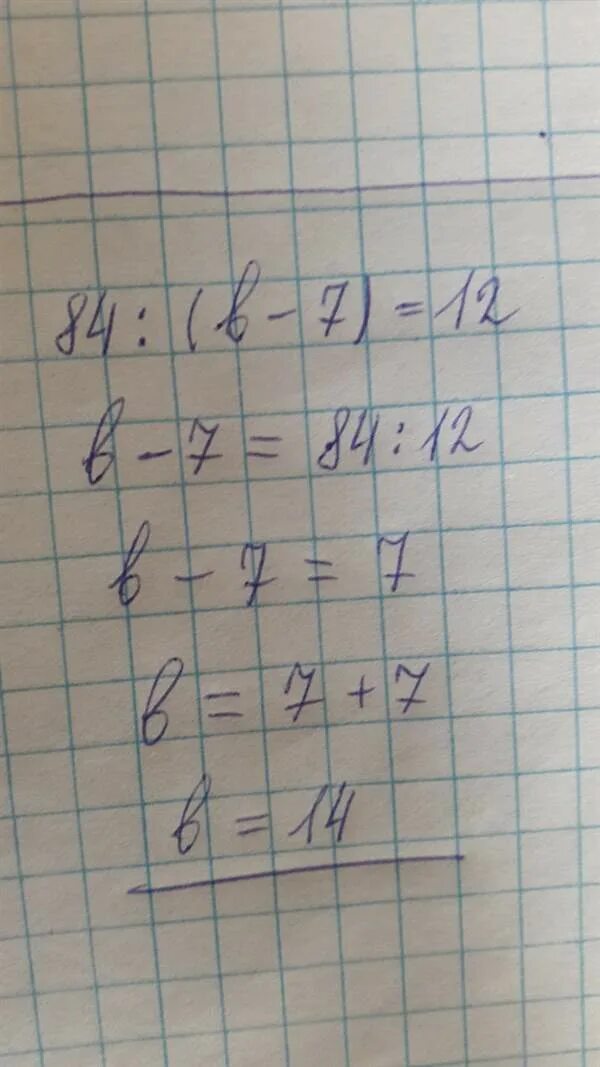 84 : (b - 7) = 12
b - 7 = 84 : 12
b - 7 = 7
b = 7 + 7
b = 14